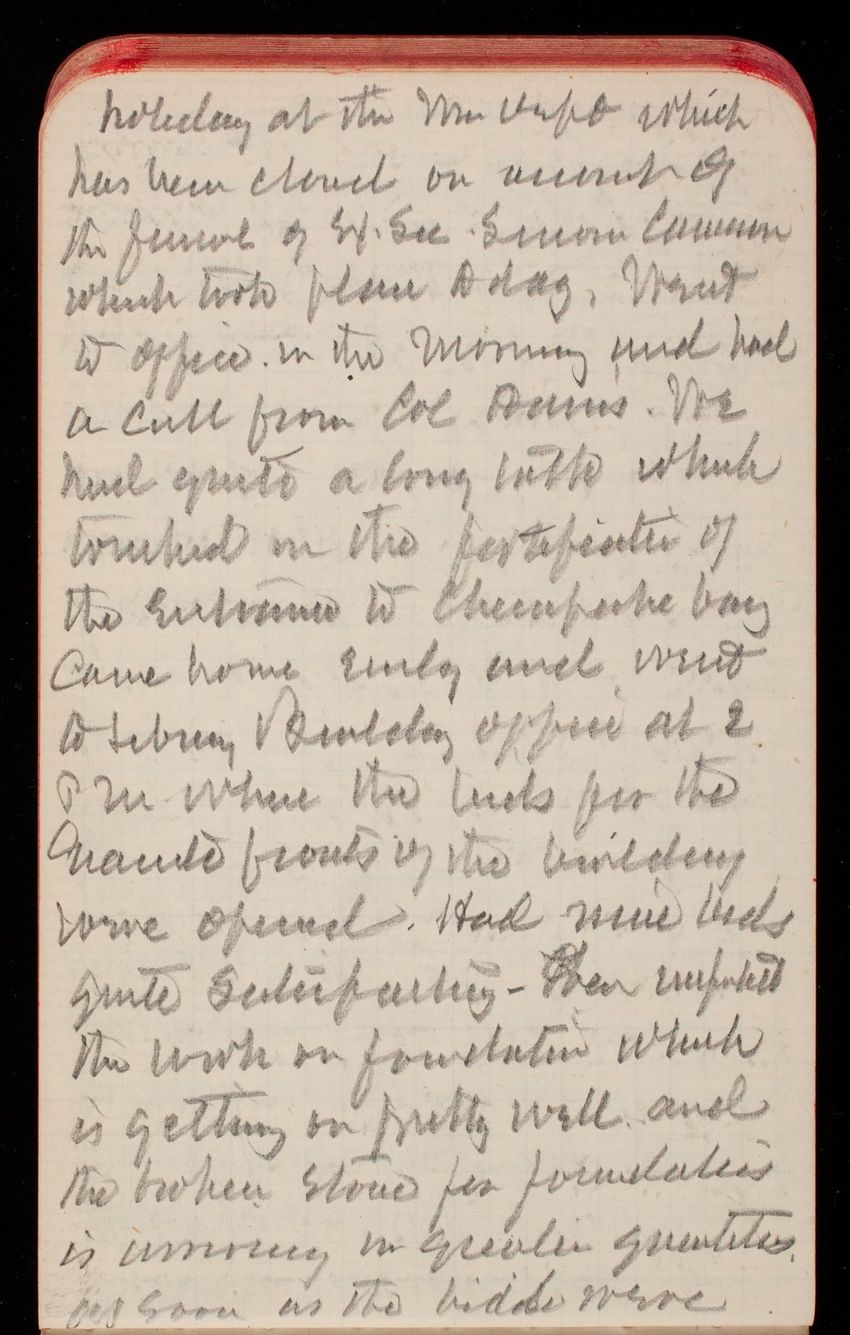 holiday at the War Dept which
has been closed on account of
the funeral of Ex. Sec. Simon Cameron
which took place today, Went
to office in the Morning and had
a call from Col Adams. We
had quite a long talk which
touched on the fortification of
the Entrance to Chesapeake bay
Came home early and went
to Library Building office at 2
P M where the bids for the
Granite fronts of the building
were opened. Had nine bids
quite satisfactory - Then inspected
the work on foundation which
is getting on pretty well and
the broken Stone for foundations
is arriving in greater quantities.
as soon as the bids were